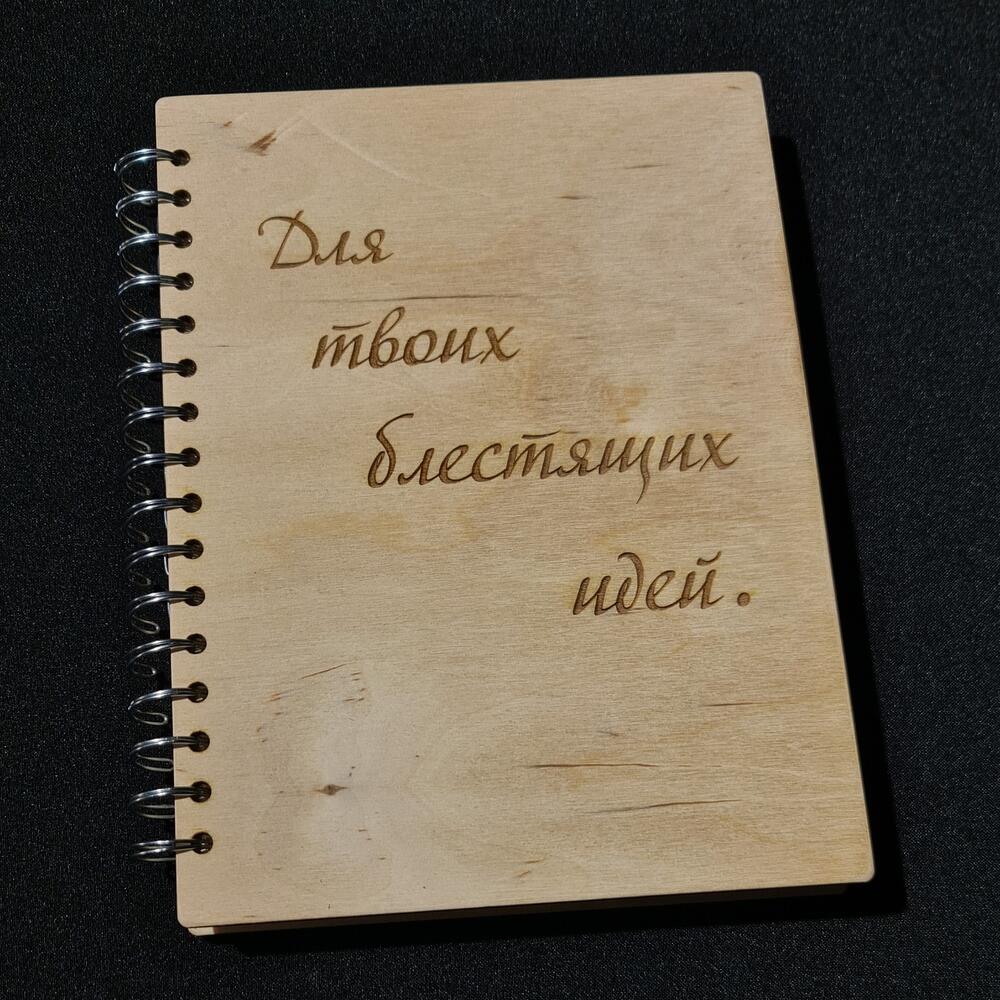 Для
твоих
блестящих
идей.